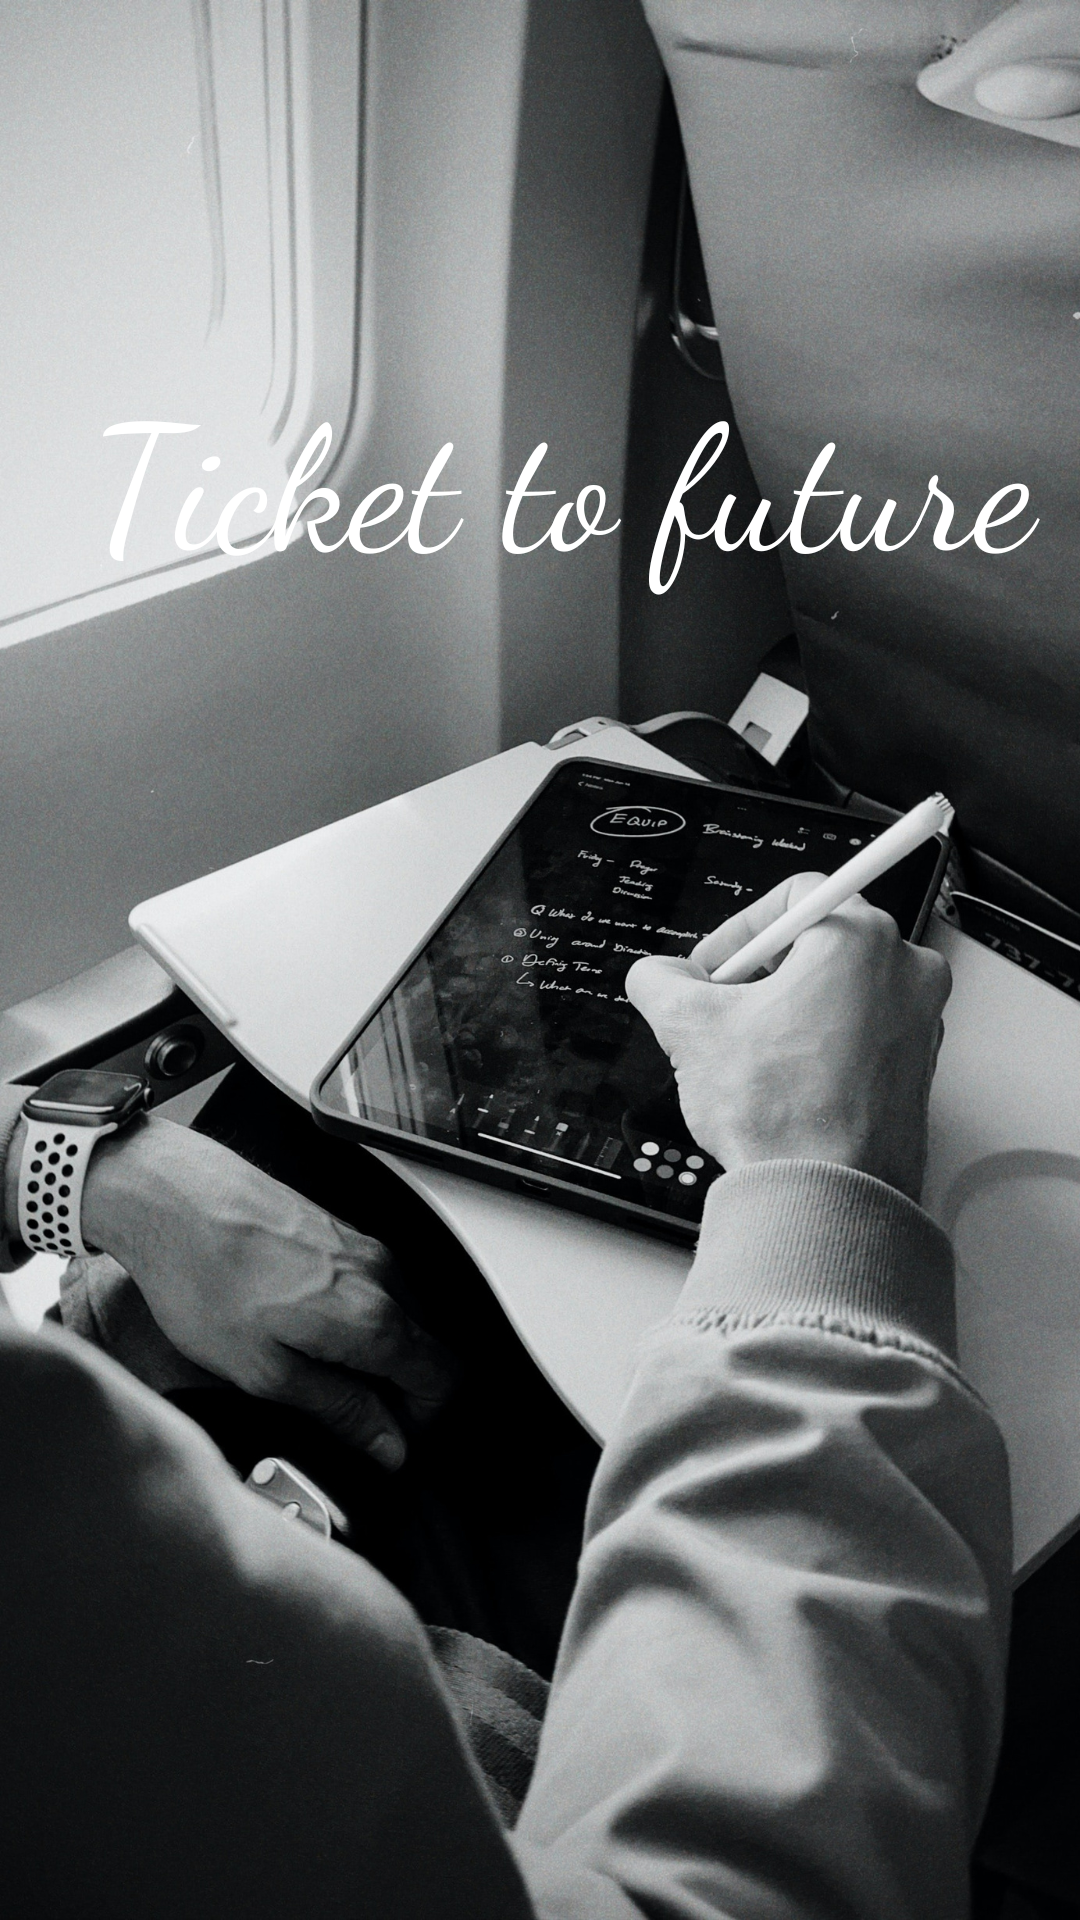 Ticket to future
EQUIP
Brainstorming Weekend
Friday - Prayer
Saturday -
Teaching
Discussion
Q What do we want to accomplish
② Unity around Direction
① Defining Terms
↳ What are we
737-7